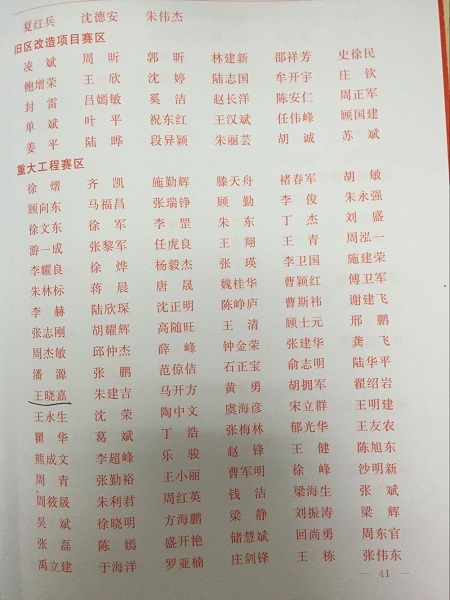 夏红兵 沈德安 朱伟杰
旧区改造项目赛区
凌斌 周昕 郭昕 林建新 邵祥芳 史徐民
鲍增荣 王欣 沈婷 陆志国 牟开宇 庄钦
封雷 吕嫣敏 奚洁 赵长洋 陈安仁 周正军
单斌 叶平 祝东红 王汉斌 任伟峰 顾国建
姜平 陆晔 段异颖 朱丽芸 胡诚 苏斌
重大工程赛区
徐熠 齐凯 施勤辉 滕天舟 褚春军 胡敏
顾向东 马福昌 张瑞铮 顾勤 李俊 朱永强
徐文东 徐军 李罡 朱东 丁杰 刘盛
游一成 张黎军 任虎良 王翔 王青 周泓一
李耀良 徐烨 杨毅杰 张瑛 李卫国 施建荣
朱林标 蒋晨 唐晟 魏桂华 曹颖红 傅卫军
李赫 陆欣琛 沈正明 陈峥庐 曹斯祎 谢建飞
张志刚 胡耀辉 高随旺 王清 顾士元 邢鹏
周杰敏 邱仲杰 薛峰 钟金荣 张建华 龚飞
潘源 张鹏 范倞佶 石正宝 俞志明 陆华平
王晓嘉 朱建吉 马开方 黄勇 胡拥军 翟绍岩
王永生 沈荣 陶中文 虞海彦 宋立群 王明建
瞿华 葛斌 丁浩 张梅林 郁光华 王友农
熊成文 李超峰 乐骏 赵锋 王健 陈旭东
周青 张勤裕 王小丽 曹军明 徐峰 沙明新
周筱晟 朱利君 周红英 钱洁 梁海生 张斌
吴斌 徐晓明 方海鹏 梁静 刘振涛 梁辉
张磊 陈嫣 盛开艳 储慧斌 回尚勇 周东官
禹立建 于海洋 罗亚楠 庄剑锋 王栋 张伟东
— 41 —